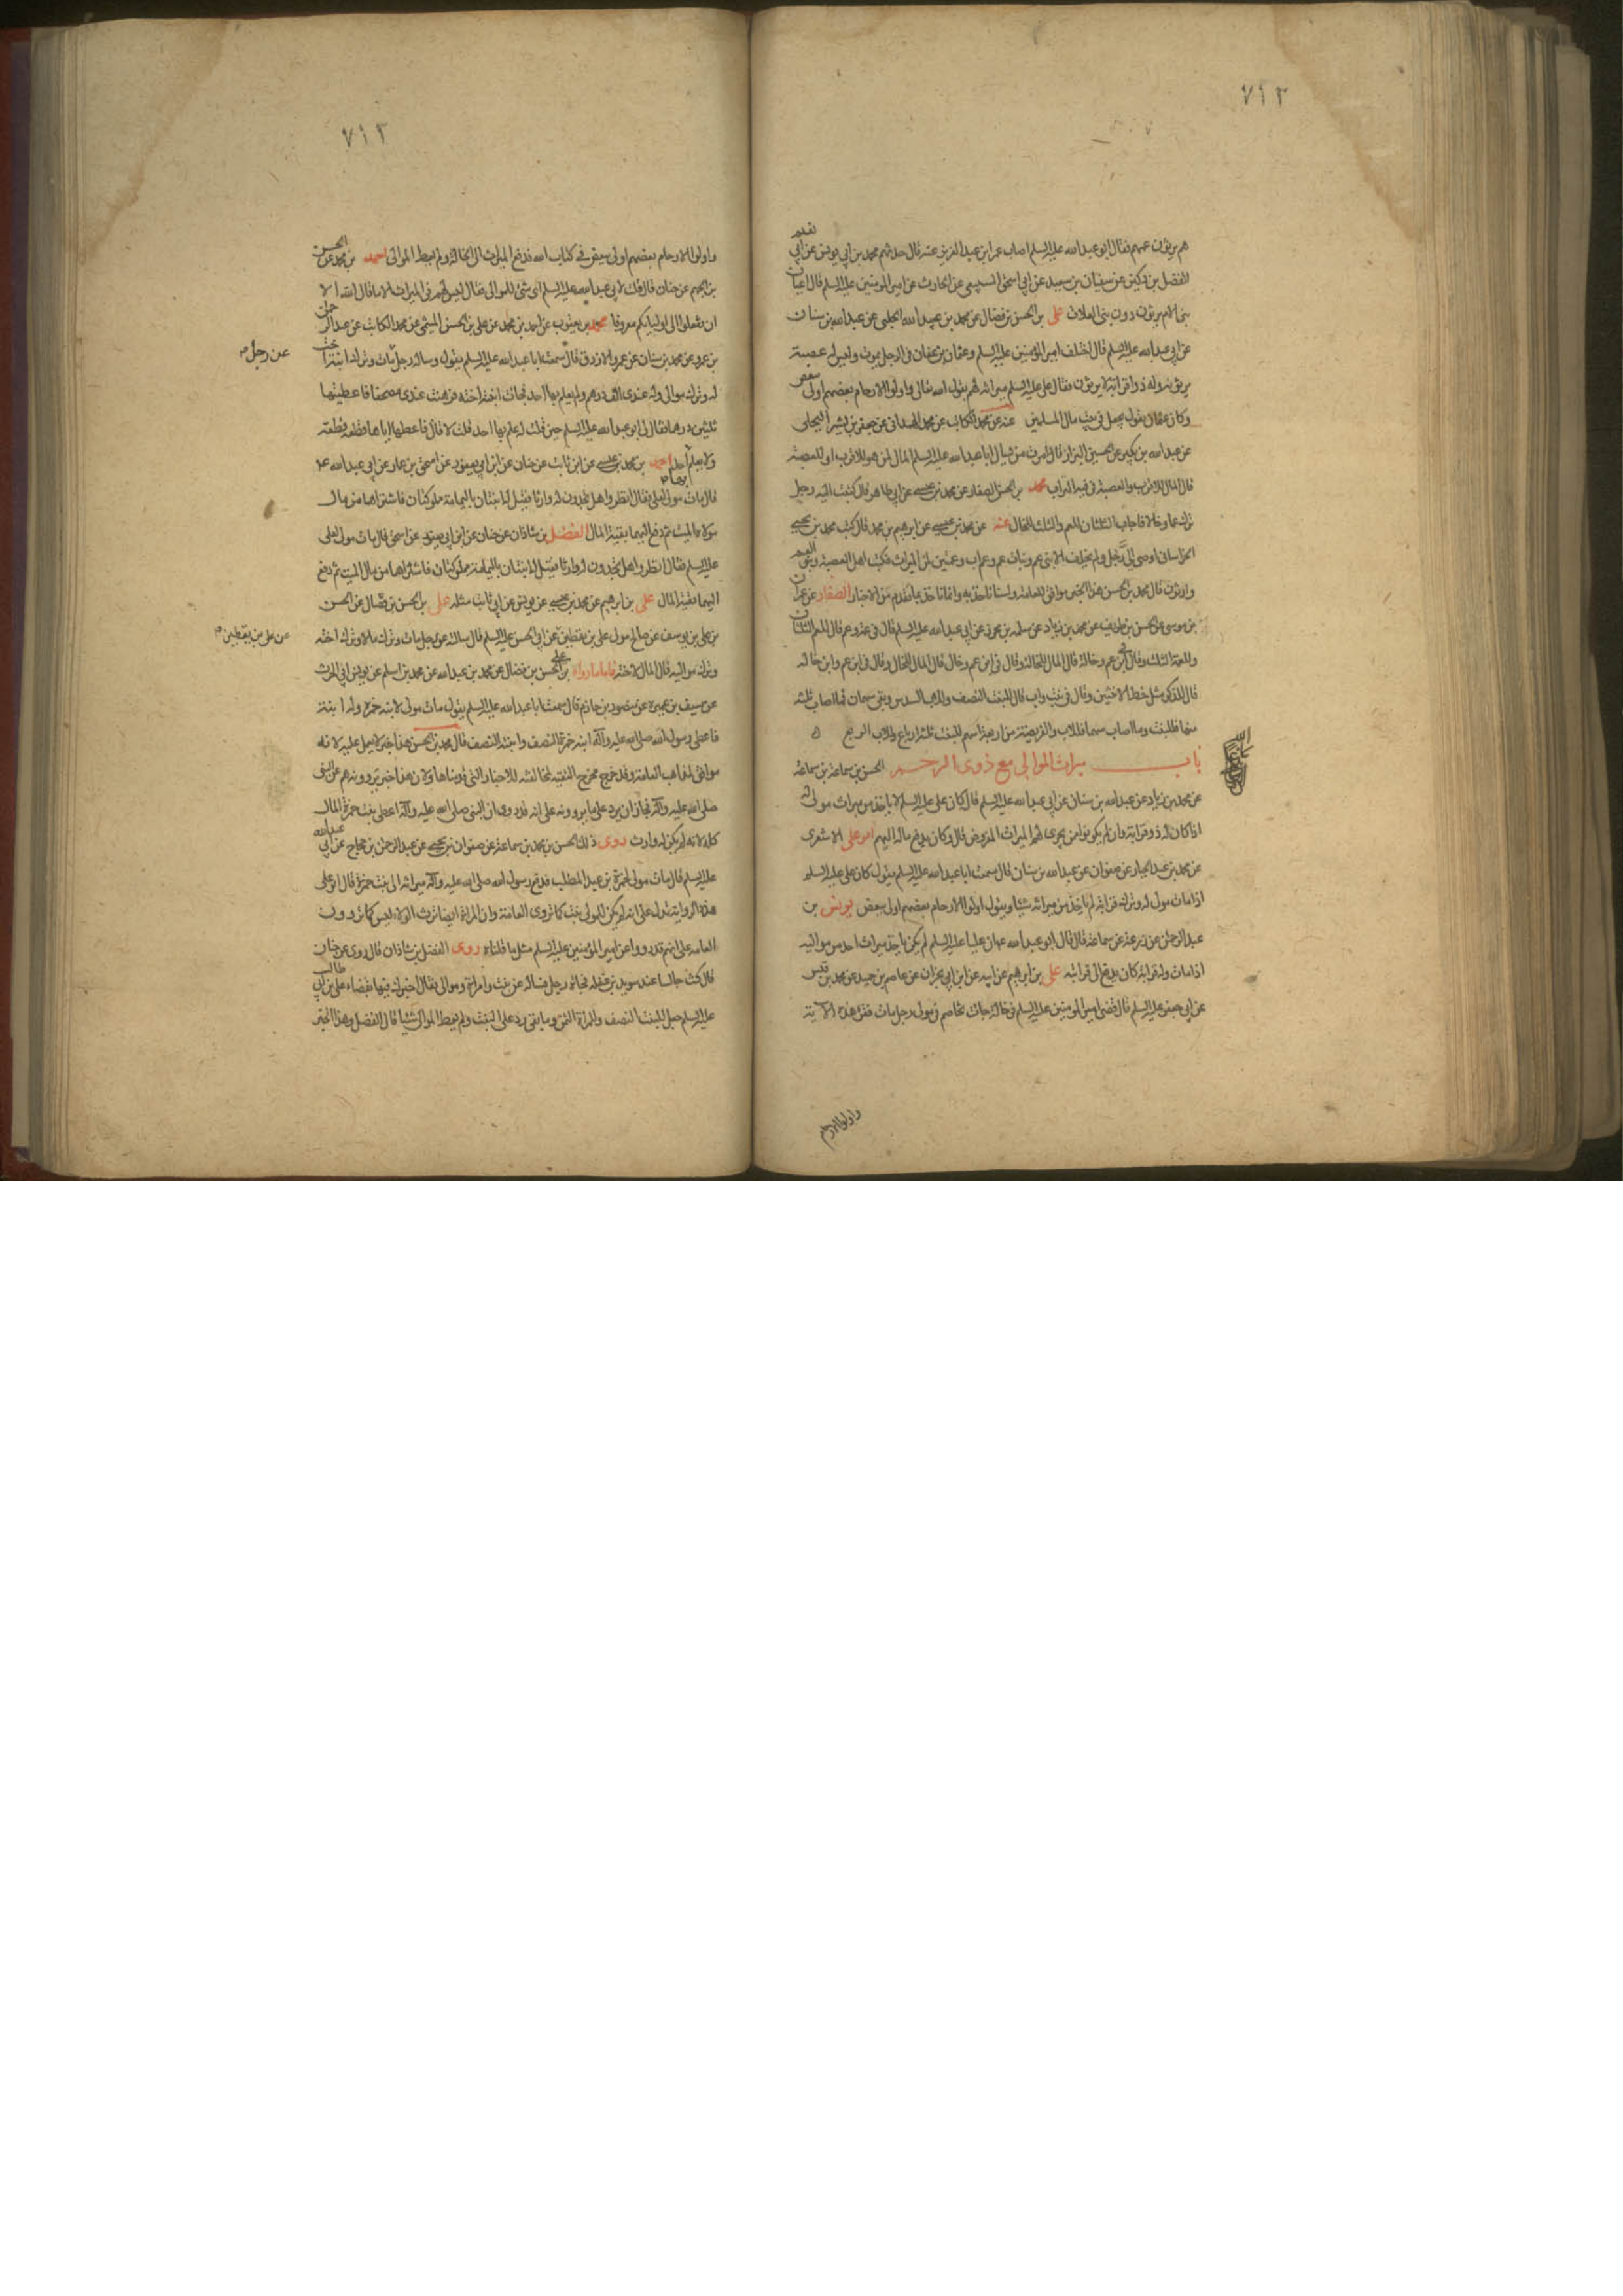 ٧١٢
هم يرثون عمهم فقال ابو عبد الله عليه السلم اصاب عمر ابن عبد العزيز عنه قال حدثهم محمد بن ابي يونس عن ابي نعيم
الفضل بن دكين عن سفيان بن سعيد عن ابي اسحق السبيعي عن الحارث عن امير المومنين عليه السلم قال اعيان
بنى الام يرثون دون بنى العلات على بن الحسن بن فضال عن محمد بن عبيد الله الحلبى عن عبد الله بن سنان
عن ابي عبد الله عليه السلم قال اختلف امير المؤمنين عليه السلم وعثمان بن عفان فى الرجل يموت وليس له عصبة
يرثونه وله ذو اقرابة لا يرثون فقال على عليه السلم ميراثه لهم يقول الله تعالى واولوا الارحام بعضهم اولى ببعض
وكان عثمان يقول يجعل فى بيت مال المسلمين عنه عن محمد الكاتب عن محمد الهمدانى عن جعفر بن بشير البجلى
عن عبد الله بن بكير عن الحسين البزاز قال امرت من يسال ابا عبد الله عليه السلم المال لمن هو للاقرب او للعصبة
قال المال للاقرب والعصبة فى فيه التراب محمد بن الحسن الصفار عن محمد بن عيسى عن ابي طاهر قال كتبت اليه رجل
ترك عما وخالا فاجاب الثلثان للعم والثلث للخال عنه عن محمد بن عيسى عن ابرهيم بن محمد قال كتب محمد بن يحيى
الخراسانى اوصى الى رجل ولم يخلف الا بنى عم وبنات عم وعم اب وعمتين لمن الميراث فكتب اهل العصبة وبنو العم
وارثون قال محمد بن الحسن هذا الخبر موافق للعامة ولسنا ناخذ به وانما ناخذ بما تقدم من الاخبار الصفار عن عمران
بن موسى عن الحسن بن طريف عن محمد بن زياد عن سلمه بن محرز عن ابي عبد الله عليه السلم قال فى عمة وعم قال للعم الثلثان
وللعمة الثلث وقال فى ابن عم وخالة قال المال للخالة وقال فى ابن عم وخال قال المال للخال وقال فى ابن عم وابن خالة
قال للذكر مثل حظ الانثيين وقال فى بنت واب قال للبنت النصف وللاب السدس وبقى سهمان فما اصاب ثلثه
منها فللبنت وما اصاب سهما فللاب والفريضة من اربعة اسهم للبنت ثلثة ارباع وللاب الربع
باب ميراث الموالى مع ذوى الرحم الحسن بن سماعة بن سماعة
عن محمد بن زياد عن عبد الله بن سنان عن ابي عبد الله عليه السلم قال كان على عليه السلم لا ياخذ من ميراث مولى له
اذا كان له ذو قرابة وان لم يكونوا من يجرى لهم الميراث المفروض قال وكان يدفع ماله اليهم ابو على الاشعرى
عن محمد بن عبد الجبار عن صفوان عن عبد الله بن سنان قال سمعت ابا عبد الله عليه السلم يقول كان على عليه السلم
اذا مات مولى له وترك قرابة لم ياخذ من ميراثه شيئا ويقول اولوا الارحام بعضهم اولى ببعض يونس بن
عبد الرحمن عن زرعة عن سماعة قال قال ابو عبد الله ع ان عليا عليه السلم لم يكن ياخذ ميراث احد من مواليه
اذا مات وله قرابة كان يدفع الى قرابته على بن ابرهيم عن ابيه عن ابن ابي نجران عن عاصم بن حميد عن محمد بن قيس
عن ابي جعفر عليه السلم قال قضى امير المومنين عليه السلم فى خالة جاءت تخاصم فى مولى رجل مات فقرا هذه الآية
واولوا الارحام
٧١٢
واولوا الارحام بعضهم اولى ببعض فى كتاب الله فدفع الميراث الى الخالة ولم يعط الموالى احمد بن محمد عن الحسن
بن الجهم عن حنان قال قلت لابي عبد الله عليه السلم اى شئ للموالى فقال ليس لهم فى الميراث الا ما قال الله الا
ان تفعلوا الى اوليائكم معروفا محمد بن يعقوب عن احمد بن محمد عن على بن الحسن الميثمى عن محمد الكاتب عن عبد الرحمن
بن عمرو عن محمد بن سنان عن عمرو الازرق قال سمعت ابا عبد الله عليه السلم يقول وساله رجل مات وترك ابنة اخت
عن رجل
له وترك موالى وله عندى الف درهم ولم يعلم بها احد فجاءت ابنة اخته فرهنت عندى مصحفا فاعطيتها
ثلثين درهما فقال لى ابو عبد الله عليه السلم حين قلت له علم بها احد قلت لا قال فاعطها اياها قطعة قطعة
ولا يعلم بها احد احمد بن محمد بن عيسى عن ابن ثابت عن حنان عن ابن ابي يعفور عن اسحق بن عمار عن ابي عبد الله ع
قال مات مولى لعلى فقال انظروا هل تجدون له وارثا فقيل له ابنتان باليمامة مملوكتان فاشتراهما من مال
مولاه الميت ثم دفع اليهما بقية المال الفضل بن شاذان عن حنان عن ابن ابي يعفور عن اسحق قال مات مولى لعلى
عليه السلم فقال انظروا هل تجدون له وارثا فقيل له ابنتان باليمامة مملوكتان فاشتراهما من مال الميت ثم دفع
اليهما بقية المال على بن ابرهيم عن محمد بن عيسى عن يونس عن ابي ثابت مثله على بن الحسن بن فضال عن الحسن
بن على بن يوسف عن صالح مولى على بن يقطين عن ابي الحسن عليه السلم قال سالته عن رجل مات وترك مالا وترك اخته
عن على بن يقطين
وترك مواليه قال المال لاخته فاما ما رواه على بن الحسن بن فضال عن محمد بن عبد الله عن محمد بن اسلم عن يونس ابي الحرث
عن سيف بن عميرة عن منصور بن حازم قال سمعت ابا عبد الله عليه السلم يقول مات مولى لابنة حمزة وله ابنة
فاعطى رسول الله صلى الله عليه وآله ابنة حمزة النصف وابنته النصف قال محمد بن الحسن هذا خبر لا يعمل عليه لانه
موافق لمذاهب العامة وقد خرج مخرج التقية لمخالفته للاخبار التى قدمناها ولان هذا خبر يروونه هم عن النبى
صلى الله عليه وآله فجاز ان يرد على ما يروونه على انه قد روى ان النبى صلى الله عليه وآله اعطى بنت حمزة المال
كله لانه لم يكن له وارث روى ذلك الحسن بن محمد بن سماعة عن صفوان بن يحيى عن عبد الرحمن بن حجاج عن ابي عبد الله
عليه السلم قال مات مولى لحمزة بن عبد المطلب فدفع رسول الله صلى الله عليه وآله ميراثه الى بنت حمزة قال ابو على
هذه الرواية تدل على انه لم يكن للمولى بنت كما تروى العامة وان المراة ايضا ترث الولاء ليس كما تروون
العامة على انهم قد رووا عن امير المؤمنين عليه السلم مثل ما قلناه روى الفضل بن شاذان قال روى عن حنان
قال كنت جالسا عند سويد بن غفلة فجاءه رجل فساله عن بنت وامراة وموالى فقال اخبرك فيها بقضاء على بن ابي طالب
عليه السلم جعل للبنت النصف وللمراة الثمن وما بقى رد على البنت ولم يعط الموالى شيئا قال الفضل وهذا الخبر